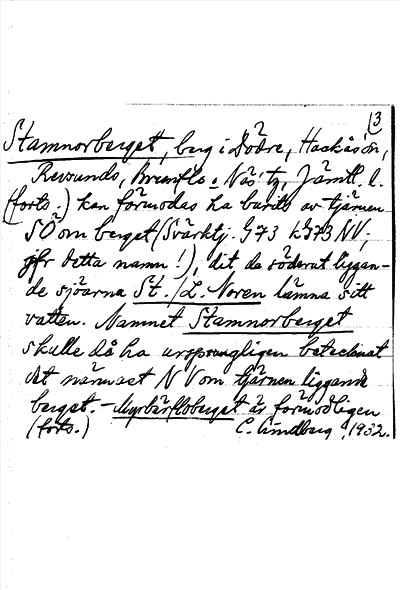 3
Stamnorberget, berg i Bodre, Hackåsön,
Revsunds, Brunflo o. Näs tg, Jämtl. l.
(forts.) kan förmodas ha burits av tjärnen
SO om berget (Svärktj. G73 k G73 NV;
jfr detta namn!), dit de söderut liggan-
de sjöarna St./L. Noren lämna sitt
vatten. Namnet Stamnorberget
skulle då ha ursprungligen betecknat
det närmast NV om tjärnen liggande
berget. - Myrbärfloberget är förmodligen
(forts.) C. Lindberg, 1932.